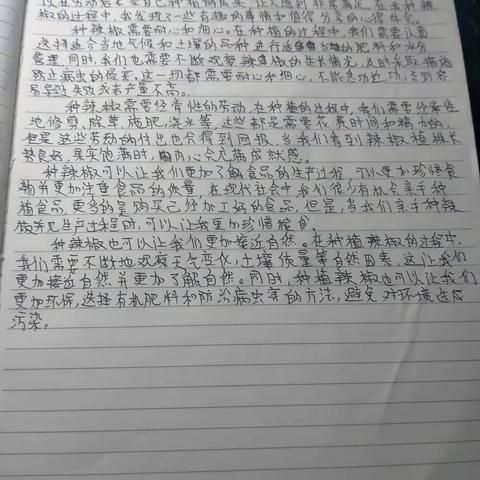 椒的过程中,我发现了一些有趣的事情和值得分享的心得体会。
种辣椒需要耐心和细心。在种植的过程中,我们需要认真
选择适合当地气候和土壤的品种进行适当的肥料和水分
管理。同时,我们也需要不断观察辣椒的生长情况,及时采取措施
防止病虫的侵害。这一切都需要耐心和细心,不能急功近功,否则容
易导致失败或者产量不高。
种辣椒需要经常性的劳动。在种植的过程中,我们需要经常性
地修剪、除草、施肥、浇水等,这些都是需要花费时间和精力的。
但是这些劳动的付出也会得到回报。当我们看到辣椒植株长
势良好,果实饱满时,内心会充满成就感。
种辣椒可以让我们更加了解食品的生产过程,可以更加珍惜食
物并更加注重食品的质量。在现代社会中,我们很少有机会亲手种
植食品,更多的是购买已经加工好的食品。但是,当我们亲手种辣
椒并见生产过程时,可以让我更加珍惜粮食。
种辣椒也可以让我们更加接近自然。在种植辣椒的过程中,
我们需要不断地观察天气变化,土壤质量等自然因素,这让我们
更加接近自然并更加了解自然。同时,种植辣椒也可以让我们
更加环保,选择有机肥料和防治病虫害的方法,避免对环境造成
污染。